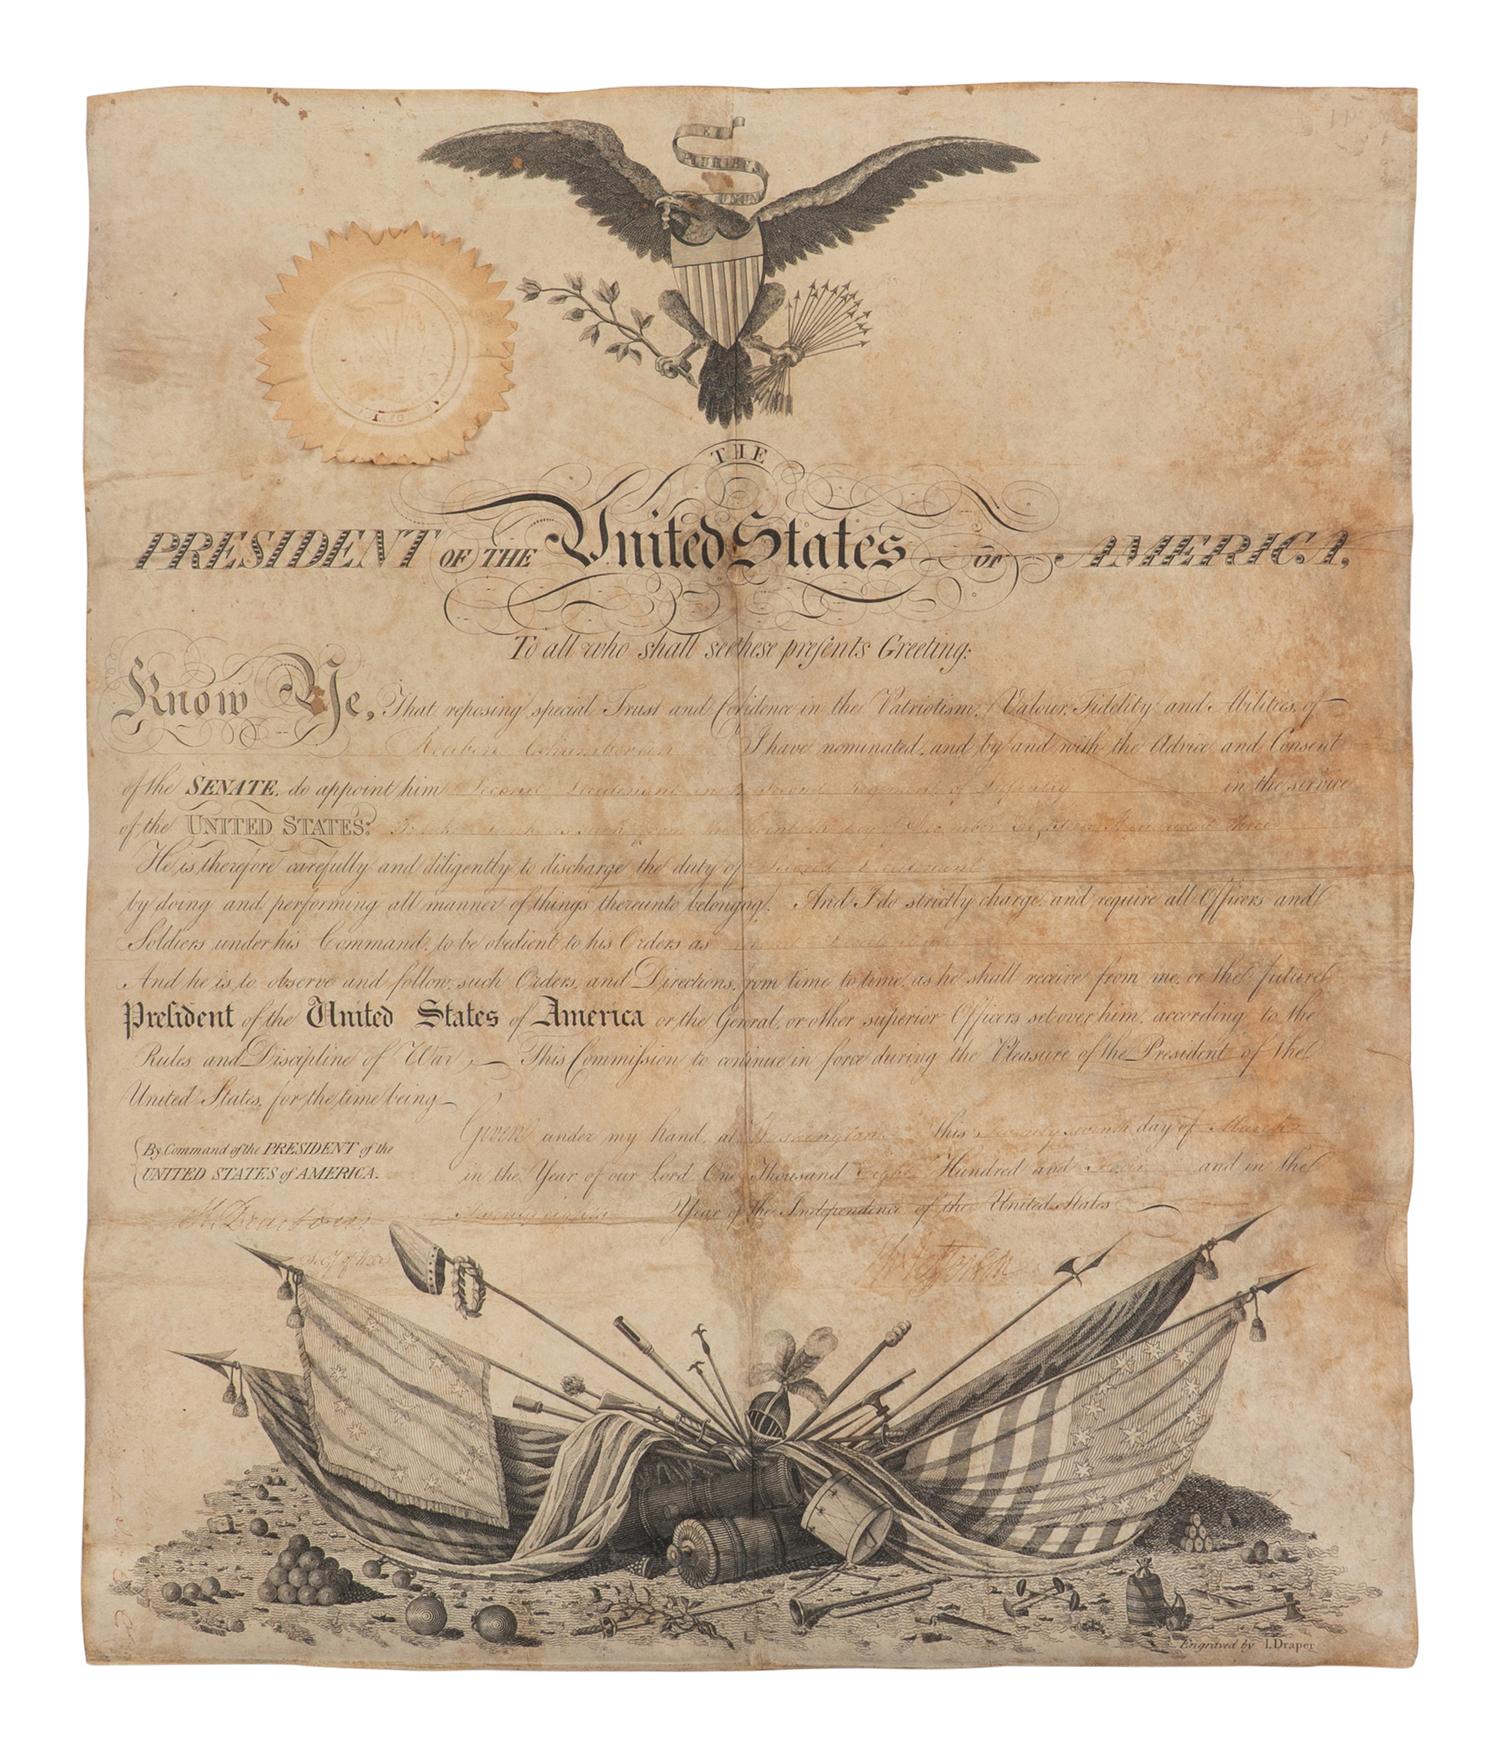 E
PLURIBUS
UNUM
THE
PRESIDENT OF THE United States OF AMERICA,
To all who shall see these presents Greeting:
Know Ye, That reposing special Trust and Confidence in the Patriotism, Valour, Fidelity and Abilities, of
Reuben Chamberlin I have nominated, and by and with the Advice and Consent
of the SENATE, do appoint him Second Lieutenant in the Second Regiment of Infantry in the service
of the UNITED STATES:
He is therefore carefully and diligently to discharge the duty of Second Lieutenant
by doing and performing all manner of things thereunto belonging. And I do strictly charge, and require all Officers and
Soldiers under his Command, to be obedient to his Orders as Second Lieutenant
And he is to observe and follow such Orders, and Directions, from time to time, as he shall receive from me, or the future
President of the United States of America or the General, or other superior Officers set over him, according to the
Rules and Discipline of War. This Commission to continue in force during the Pleasure of the President of the
United States, for the time being
Given under my hand, at Washington this twenty seventh day of March
By Command of the PRESIDENT of the
in the Year of our Lord One Thousand Eight Hundred and Four and in the
UNITED STATES of AMERICA.
Twenty eighth Year of the Independence of the United States
H Dearborn
Th Jefferson
Engraved by I. Draper